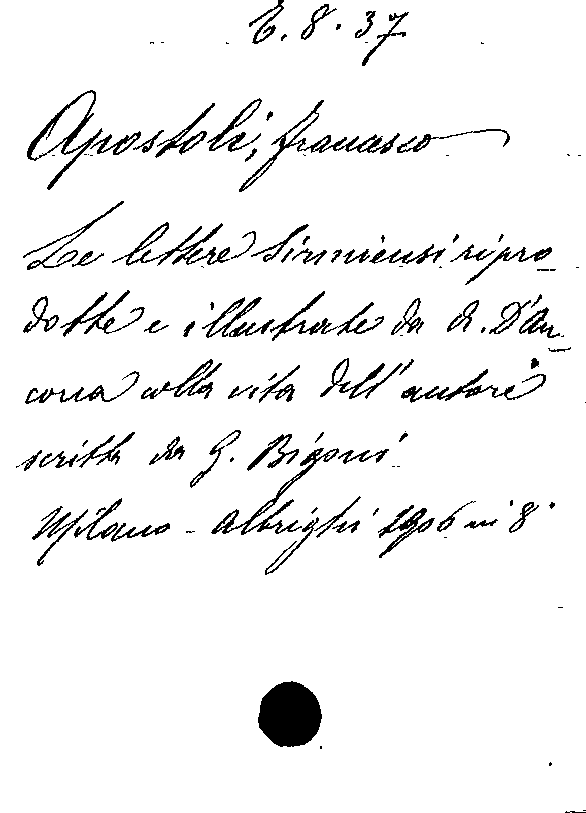 E. 8. 37
Apostoli, Francesco
Le lettere Sirmiensi ripro_
dotte e illustrate da A. D'An_
cona colla vita dell'autore
scritta da G. Bigoni
Milano - Albrighi 1906 in 8°